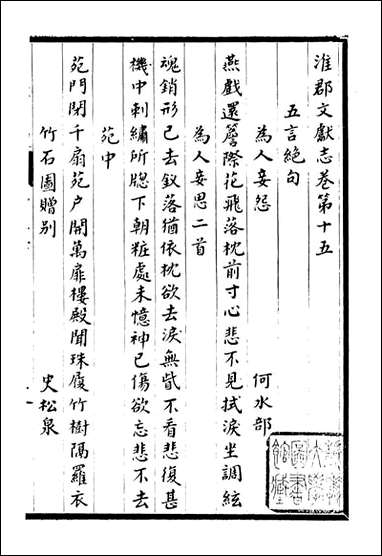 淮郡文獻志卷第十五
五言絕句
為人妾怨 何水部
燕戲還簷際花飛落枕前寸心悲不見拭淚坐調絃
為人妾思二首
魂銷形已去釵落猶依枕欲去淚無眥不看悲復甚
機中刺繡所牕下朝粧處未憶神已傷欲忘悲不去
苑中
苑門閉千扇苑戶開萬扉樓殿聞珠履竹樹隔羅衣
竹石圖贈別 史松泉
大學
圖書
館藏